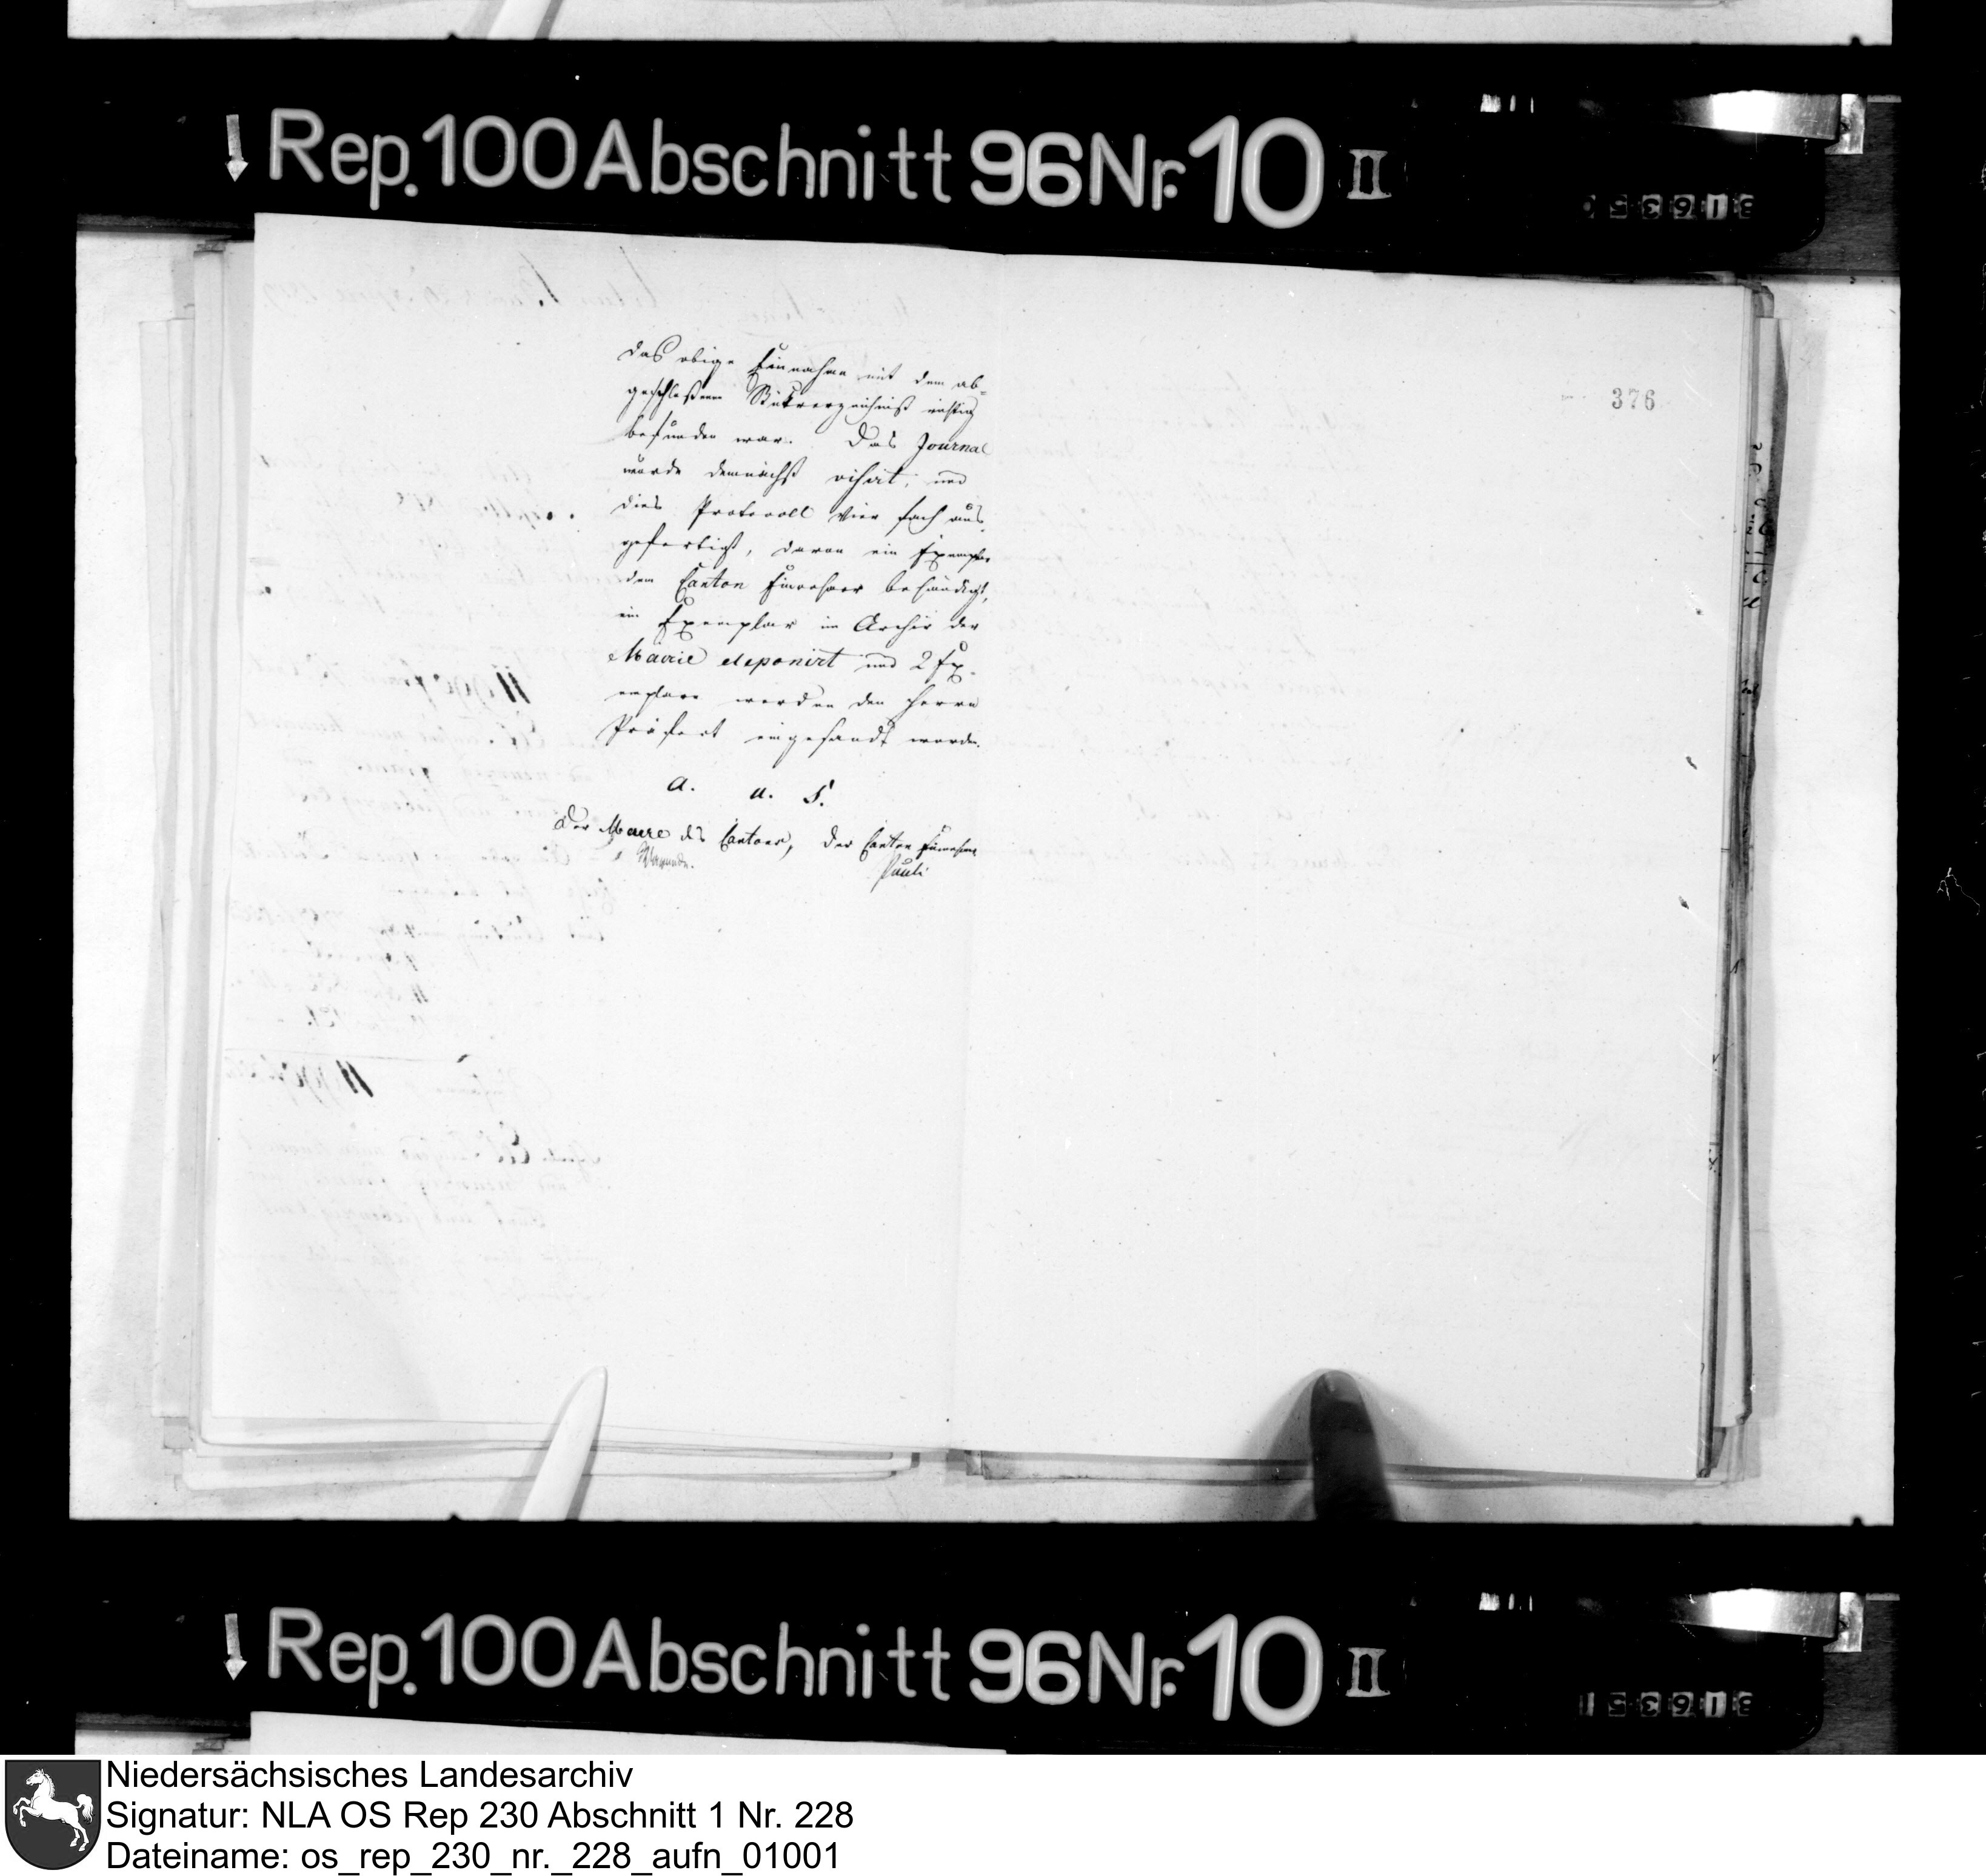 Rep. 100 Abschnitt 96 Nr. 10 II
376
daß obige Einnahme mit dem ab-
geschloßenen verzeichniß richtig
befunden war. Das Journal
wurde demnächst visirt, und
dies Protocoll vier fach aus-
gefertigt, davon ein Exemplar
dem Canton Einnehmer behändigt,
ein Exemplar im Archiv der
Mairie deponirt und 2 Ex-
emplare werden dem Herrn
Präfect eingesandt werden.
a. u. S.
Der Maire des Cantons, Der Canton Einnehmer
Pauli
Rep. 100 Abschnitt 96 Nr. 10 II
Niedersächsisches Landesarchiv
Signatur: NLA OS Rep 230 Abschnitt 1 Nr. 228
Dateiname: os_rep_230_nr._228_aufn_01001